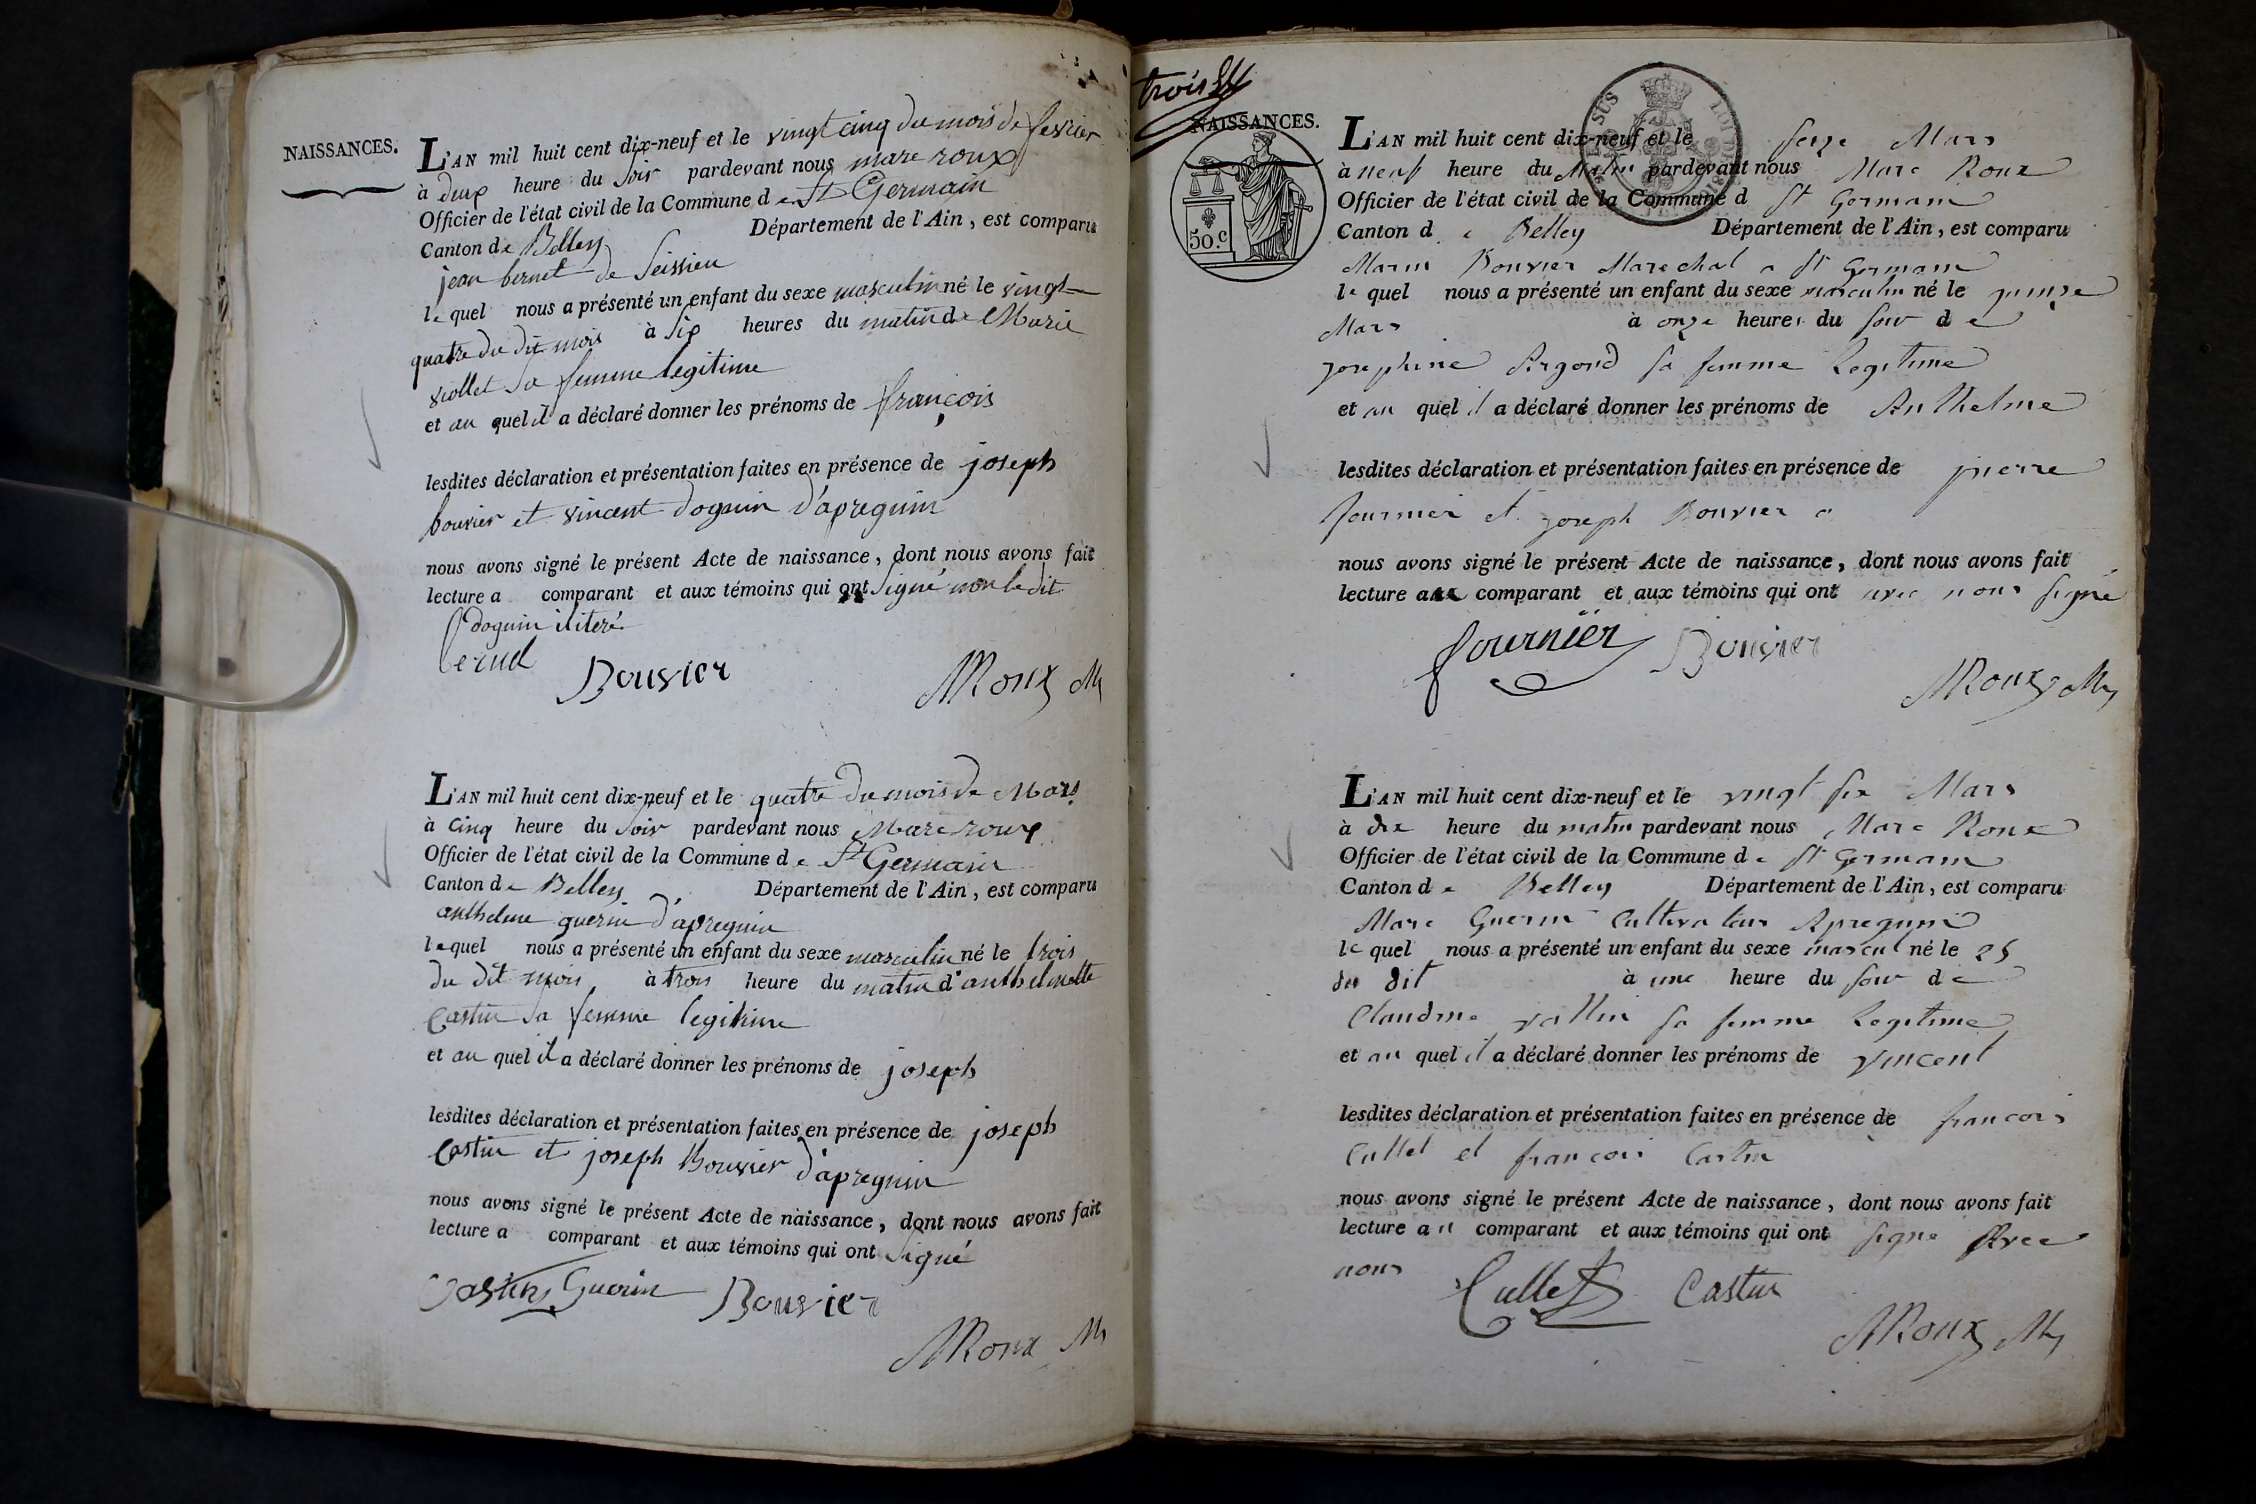 NAISSANCES.
L'AN mil huit cent dix-neuf et le vingt cinq du mois de fevrier
à deux heure du soir pardevant nous marc roux
Officier de l'état civil de la Commune de St Germain
Canton de Belley Département de l'Ain, est comparu
jean bernet de Seissieu
lequel nous a présenté un enfant du sexe masculin né le vingt
quatre du dit mois à six heures du matin de Marie
viollet sa femme legitime
et au quel il a déclaré donner les prénoms de françois
lesdites déclaration et présentation faites en présence de joseph
bouvier et vincent doguin d'apregnin
nous avons signé le présent Acte de naissance, dont nous avons fait
lecture a comparant et aux témoins qui ont signé non le dit
doguin iliteré
Bouvier MRoux M
L'AN mil huit cent dix-neuf et le quatre du mois de Mars
à cinq heure du soir pardevant nous Marc roux
Officier de l'état civil de la Commune de St Germain
Canton de Belley Département de l'Ain, est comparu
anthelme guerin d'apregnin
lequel nous a présenté un enfant du sexe masculin né le trois
du dit mois à trois heure du matin d'anthelmette
Castin sa femme legitime
et au quel il a déclaré donner les prénoms de joseph
lesdites déclaration et présentation faites en présence de joseph
Castin et joseph Bouvier d'apregnin
nous avons signé le présent Acte de naissance, dont nous avons fait
lecture a comparant et aux témoins qui ont signé
Castin Guerin Bouvier
MRoux M
trois
NAISSANCES.
50.c
L'AN mil huit cent dix-neuf et le seize Mars
à neuf heure du Matin pardevant nous Marc Roux
Officier de l'état civil de la Commune d St Germain
Canton de Belley Département de l'Ain, est comparu
Marin Bouvier Marechal a St Germain
lequel nous a présenté un enfant du sexe masculin né le quinze
Mars à onze heures du soir de
josephine Argond sa femme Legitime
et au quel il a déclaré donner les prénoms de Anthelme
lesdites déclaration et présentation faites en présence de pierre
fournier et joseph Bouvier
nous avons signé le présent Acte de naissance, dont nous avons fait
lecture aux comparant et aux témoins qui ont avec nous signé
fournier Bouvier
MRoux M
L'AN mil huit cent dix-neuf et le vingt six Mars
à dix heure du matin pardevant nous Marc Roux
Officier de l'état civil de la Commune de St Germain
Canton de Belley Département de l'Ain, est comparu
Marc Guerin Cultivateur Apregnin
lequel nous a présenté un enfant du sexe mascul né le 25
du dit à une heure du soir de
Claudine vallin sa femme Legitime
et au quel il a déclaré donner les prénoms de vincent
lesdites déclaration et présentation faites en présence de francois
Cullet et francois Castin
nous avons signé le présent Acte de naissance, dont nous avons fait
lecture au comparant et aux témoins qui ont signe Avec
nous Cullet Castin
MRoux M